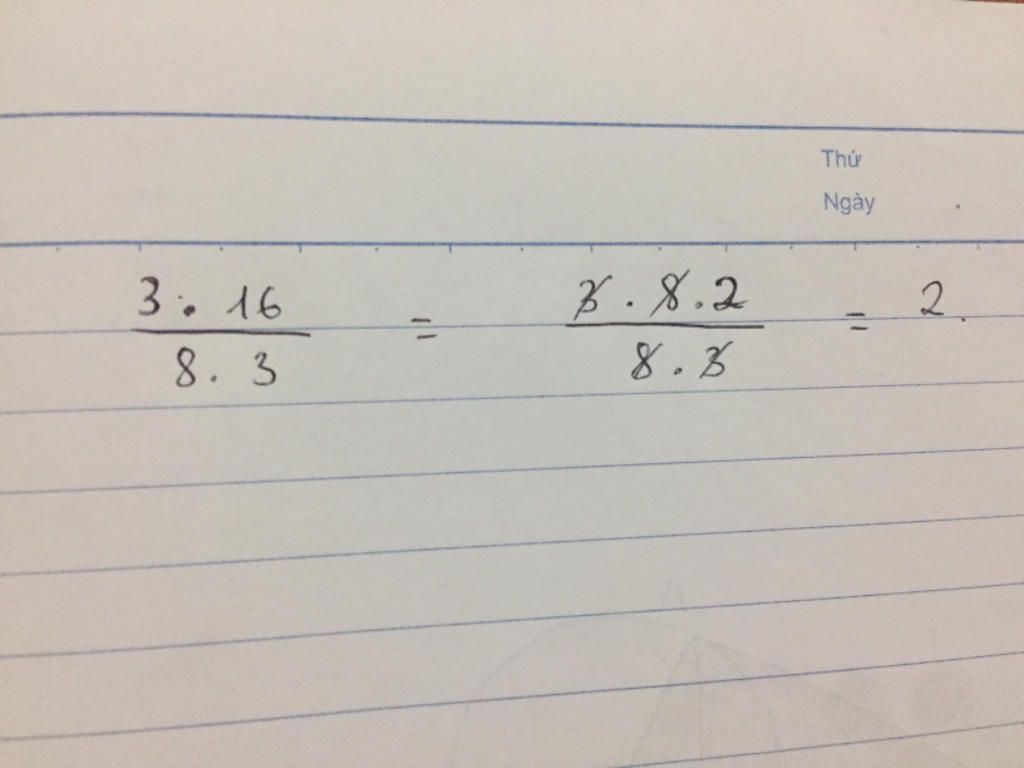 Thứ
Ngày
3 . 16 / 8 . 3 = 3 . 8 . 2 / 8 . 3 = 2.